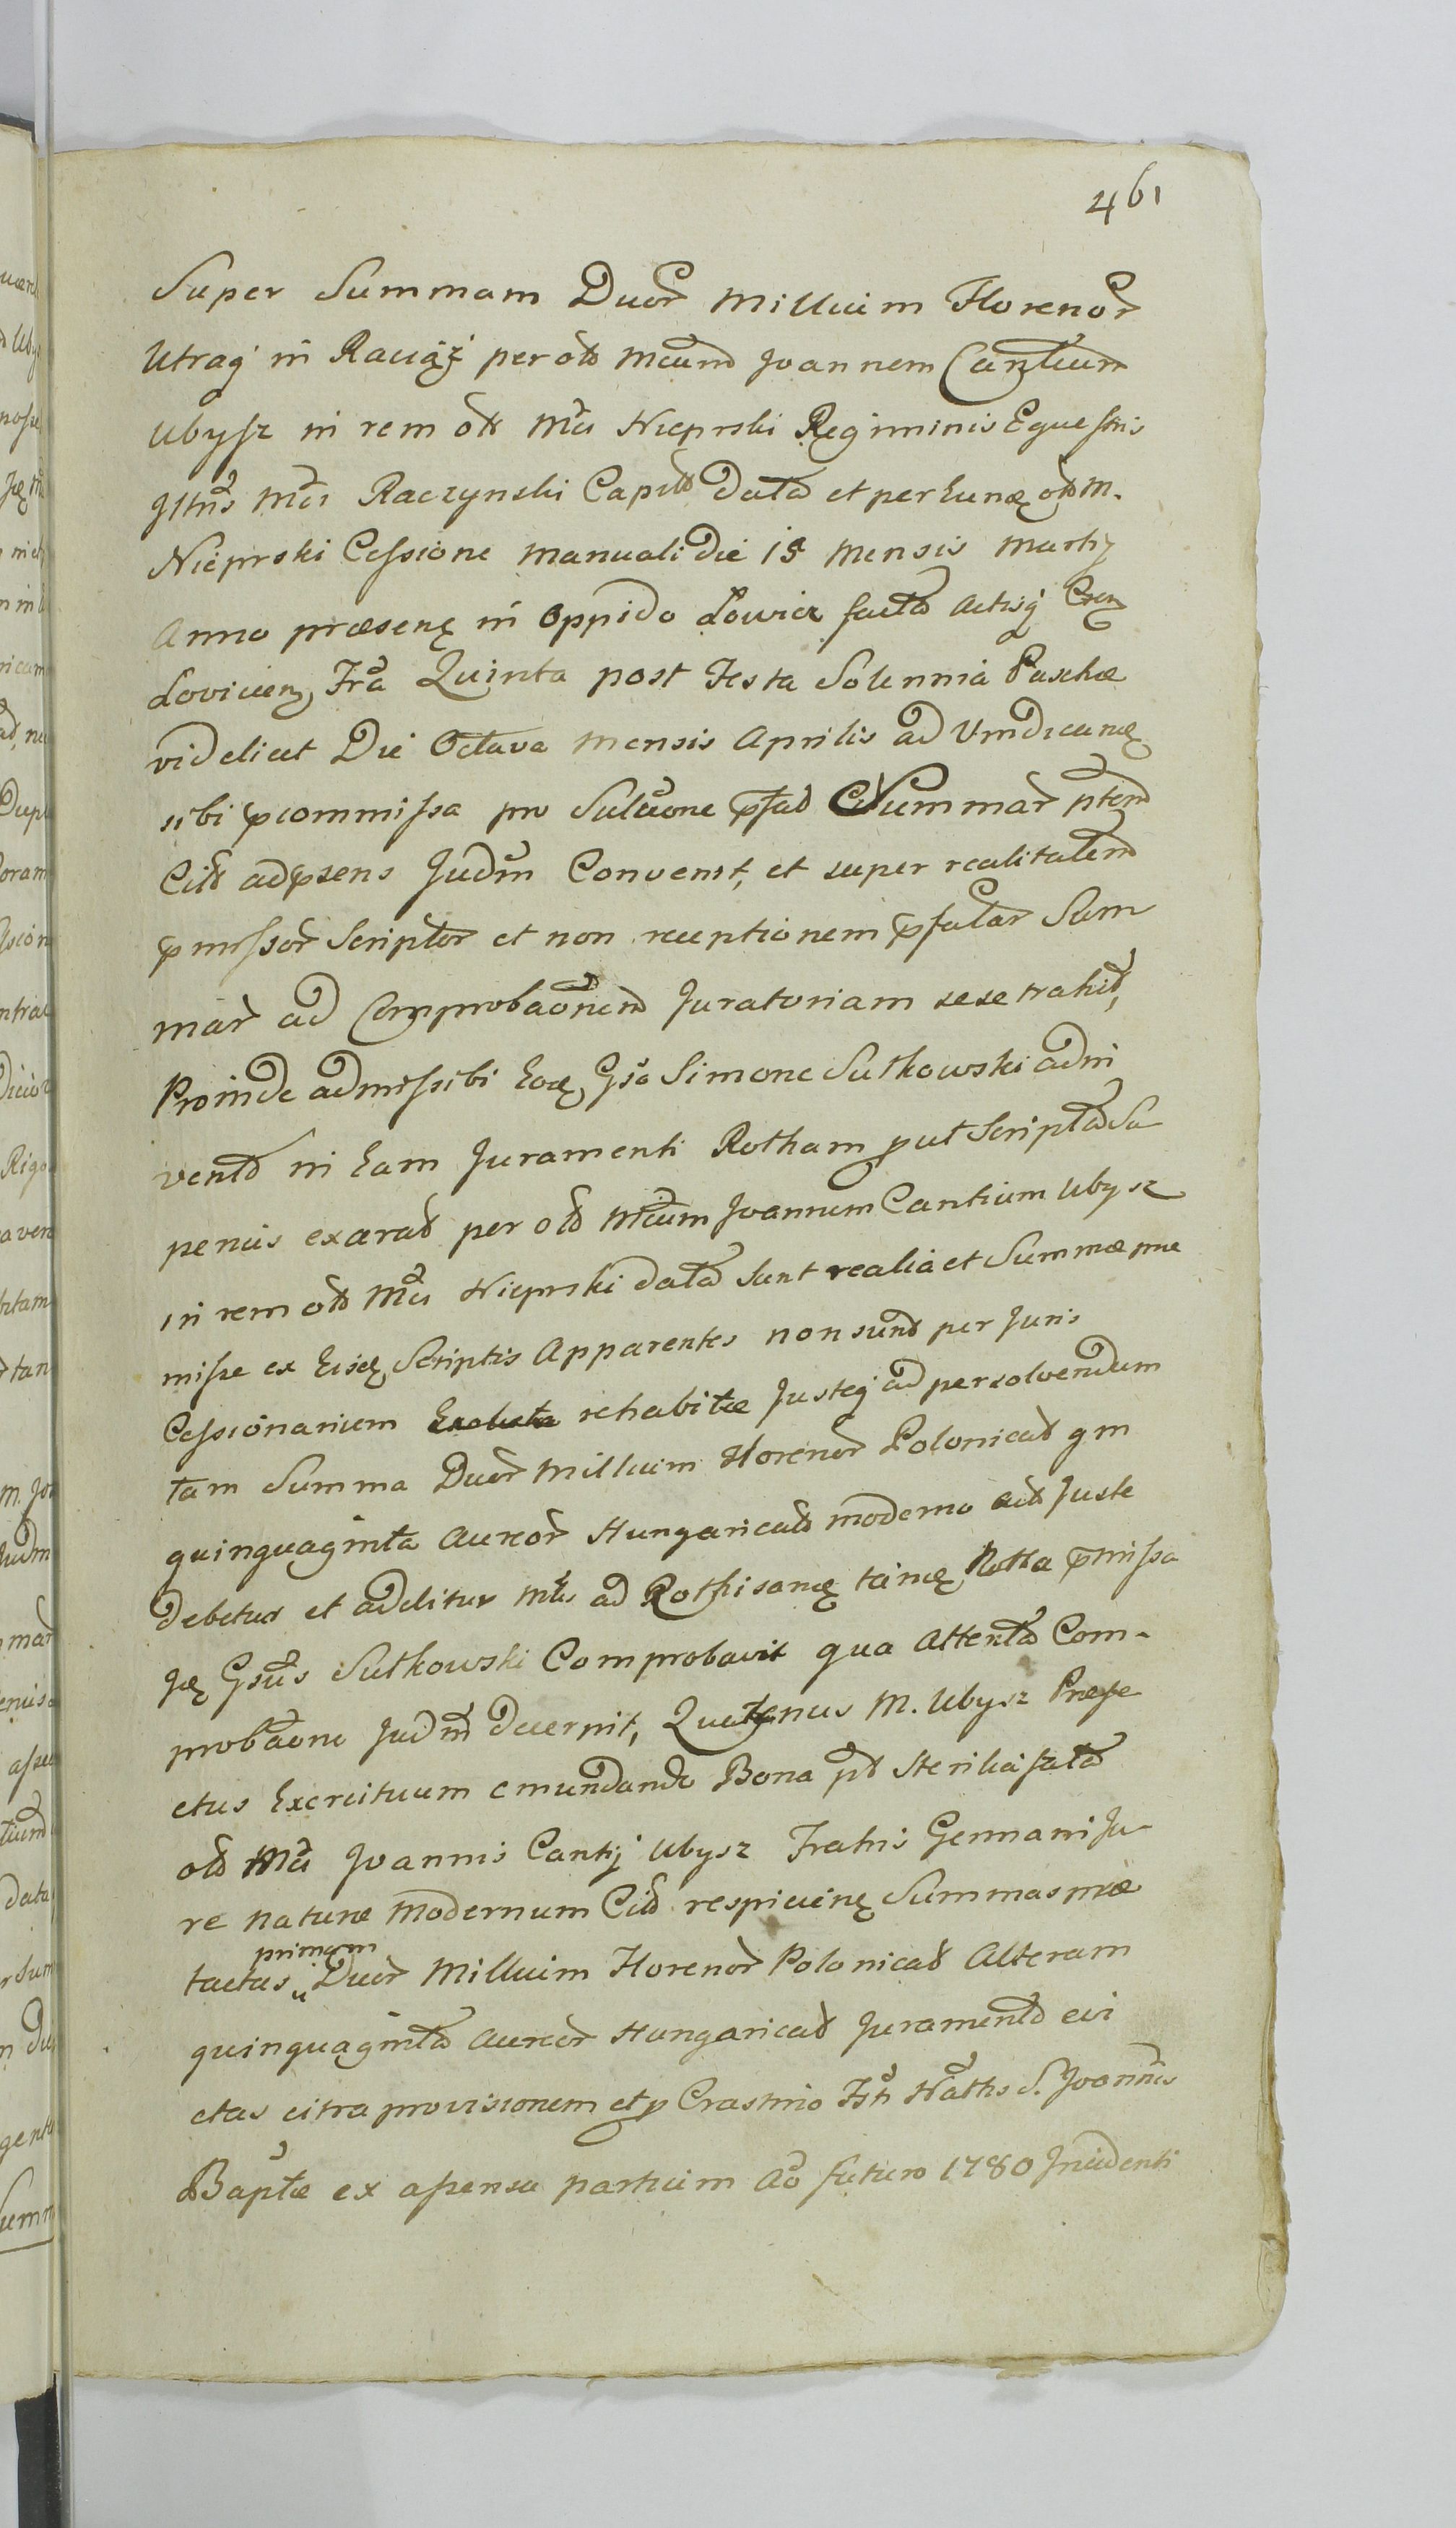 461
Super Summam Duor Millium Florenor
Utraq in Raciąż per olb Mcum Joannem Cantium
Ubysz in rem olb Mci Nieprski Regiminis Equestris
Illris Mci Raczynski Capit Data et per Eunde olb M.
Nieprski Cessione Manuali Die 15 Mensis Martij
Anno præsenę in Oppido Łowicz facta Actisq
Lovicien, Fra Quinta post Festa Solennia Paschæ
videlicet Die Octava Mensis Aprilis ad Vindicanę
sibi præcommissa pro Solutione præfat Summar pten
Citt ad præsens Judm Convenit, et super realitatem
præmissor Scriptor et non receptionem præfatar Sum
mar ad Comprobaonem Juratoriam sese trahit,
Proinde admissibi Eoę Gso Simone Sutkowski adin
vent in Eam Juramenti Rotham put Scripta Su
perius exarat per olb Mcium Joannem Cantium Ubysz
in rem olb Mci Nieprski Data sunt realia et Summæ præ
missæ ex Eisdę Scriptis Apparentes non sunt per Juris
Cessionarium rehabitæ Justeq ad persolvendum
tam Summa Duor Millium Florenor Polonicat qm
quinquaginta Aureor Hungaricat moderno Citt Juste
Debetur et additur ad Rothisanę tamę Rotha præmissa
Gsus Sutkowski Comprobavit qua Attenta Com-
probaone Judm Decernit, Quatenus M. Ubysz Præfe
ctus Exercituum emundando Bona pt Sterilia fata
olb Mci Joannis Cantij Ubysz Fratris Germani Ju
re naturæ Modernum Citt respicienę Summas præ
tactas primam Duor Millium Florenor Polonicat Alteram
quinquaginta Aureor Hungaricat Juramento evi
ctas citra provisionem et p Crastino Fsti Naths S. Joannis
Baptæ ex assensu partium Ao futuro 1780 Incidenti